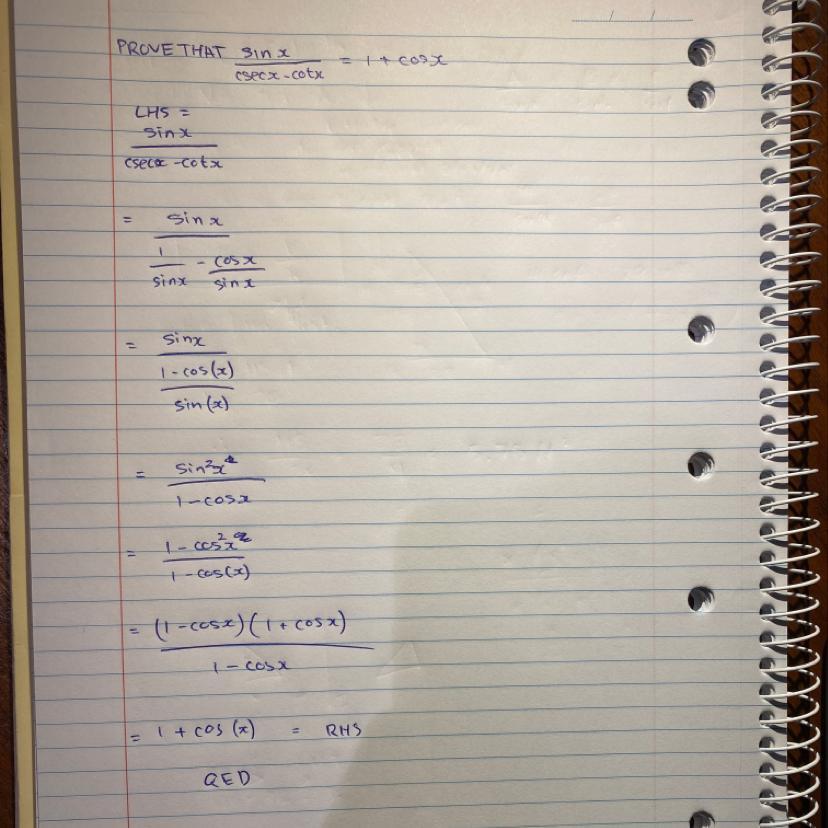 PROVE THAT sin x / csecx - cotx = 1 + cosx
LHS =
sin x
csecx - cotx
= sin x
1 / sinx - cosx / sinx
= sinx
1 - cos(x)
sin(x)
= sin²x
1 - cosx
= 1 - cos²x
1 - cos(x)
= (1 - cosx)(1 + cosx)
1 - cosx
= 1 + cos(x) = RHS
QED